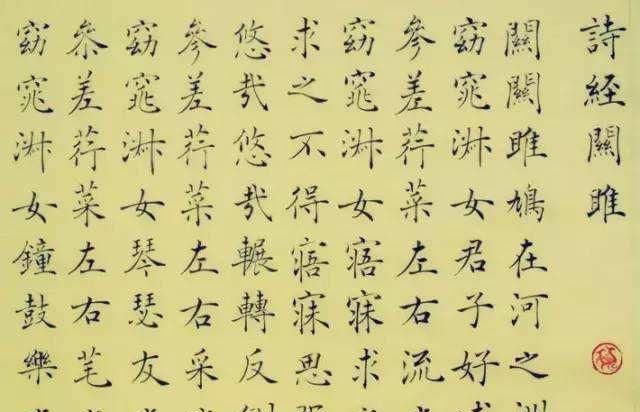 詩經關雎
關關雎鳩在河之
窈窕淑女君子好
參差荇菜左右流
窈窕淑女寤寐求
求之不得寤寐思
悠哉悠哉輾轉反
參差荇菜左右采
窈窕淑女琴瑟友
叅差荇菜左右芼
窈窕淑女鐘鼓樂